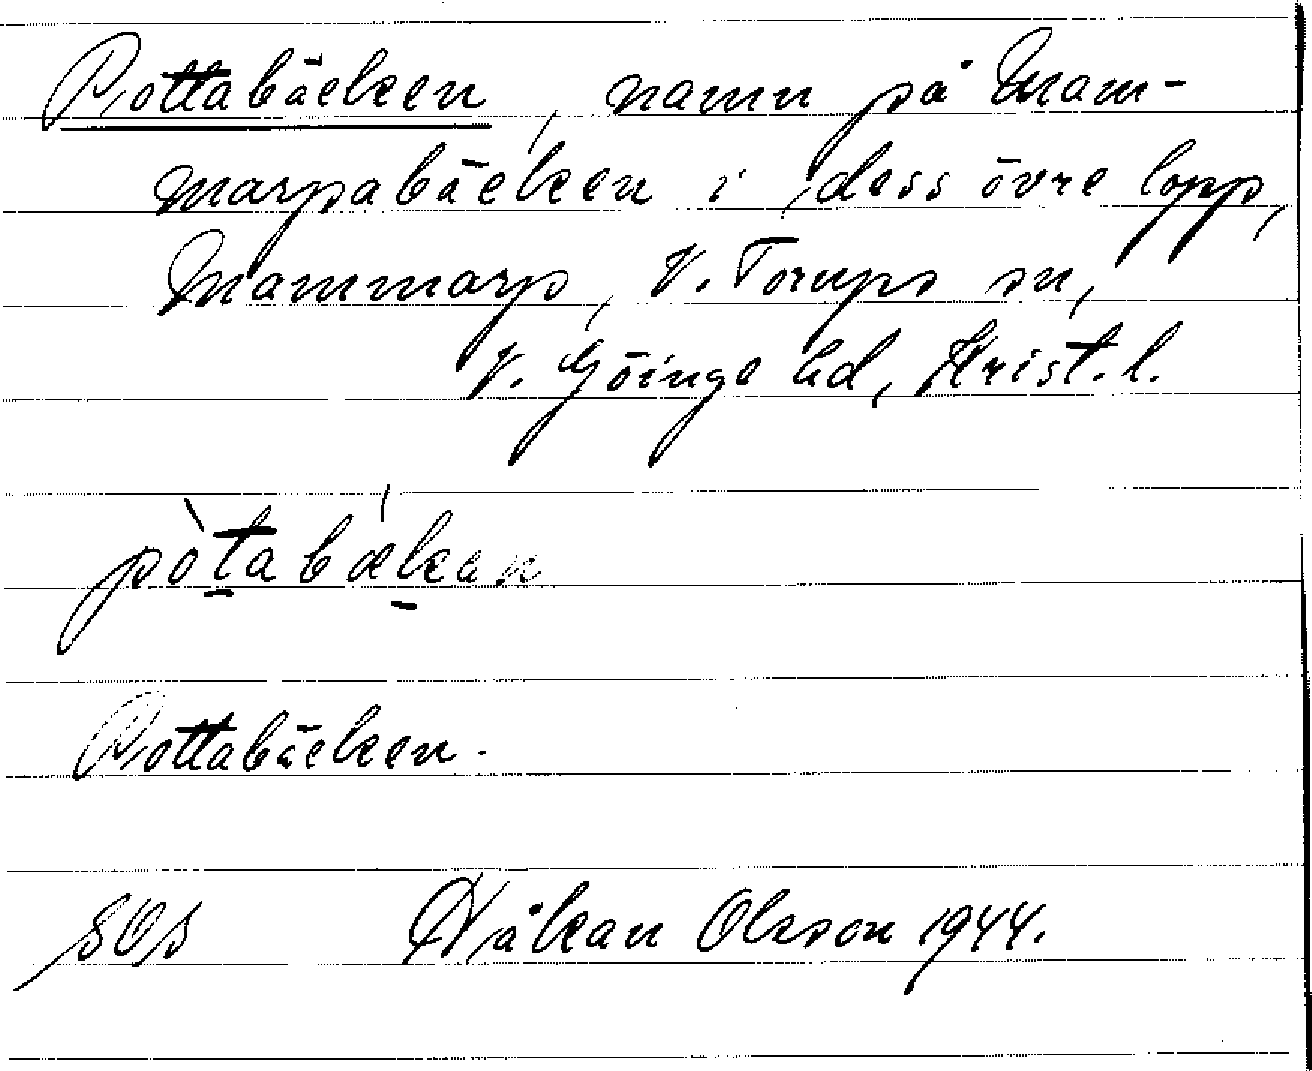 Pottabäcken, namn på Mam-
marpabäcken i dess övre lopp,
Mammarp, V. Torups sn,
V. Göinge hd, Krist. l.
pòtabækan
Pottabäcken.
SOS Håkan Olsson 1944.